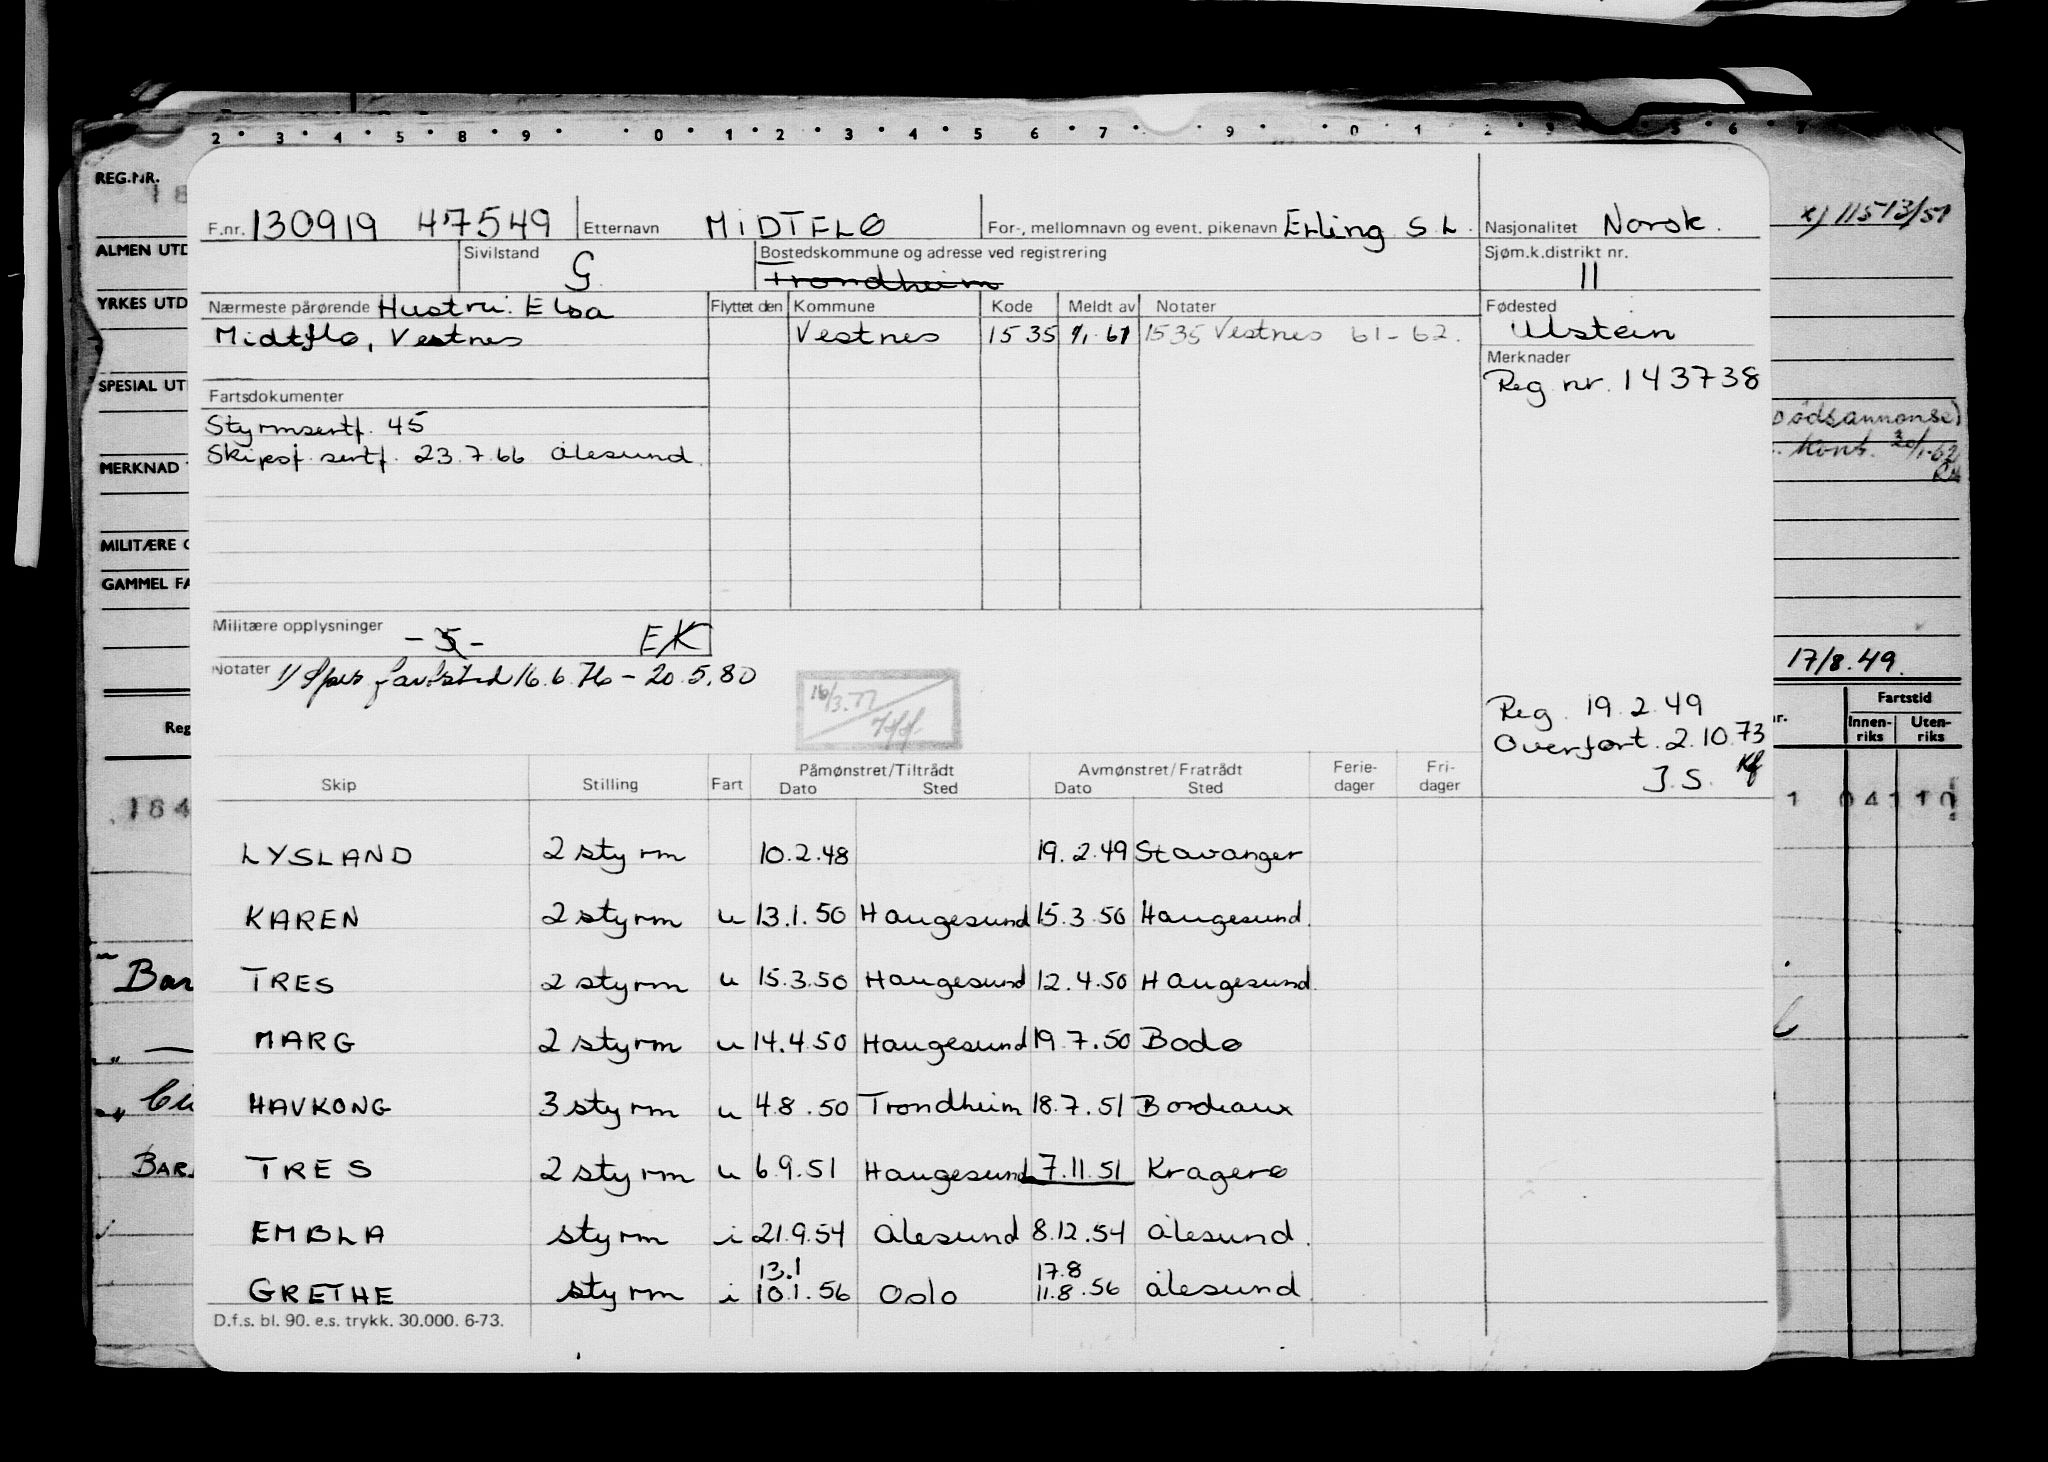 2 · 3 · 4 · 5 · 8 · 9 · · 0 · 1 · 2 · 3 · 4 · 5 6 · 7 · 9 · 0 1
REG.NR.
ALMEN UTD
YRKES UTD
SPESIAL UT
MERKNAD
MILITÆRE
GAMMEL FA
Reg
164
Bar
BAR
x) 11513/51
Dødsannonse)
17/8.49.
Fartstid
Innen-riks Uten-riks
F.nr. 130919 47549 Etternavn MIDTFLØ For-, mellomnavn og event. pikenavn Erling S.L. Nasjonalitet Norsk.
Sivilstand G Bostedskommune og adresse ved registrering Sjøm.k.distrikt nr.
Trondheim 11
Nærmeste pårørende Hustru: Elsa Flyttet den Kommune Kode Meldt av Notater Fødested
Midtflø, Vestnes Vestnes 1535 1/1-61 1535 Vestnes 61-62. Ulstein
Merknader
Reg nr. 143738
Fartsdokumenter
Styrmsertf. 45
Skipsf. sertf. 23.7.66 Ålesund.
Militære opplysninger -5- EK
Notater 1) Spes fartstid 16.6.76 - 20.5.80
16/3.77
Reg. 19.2.49
Overført. 2.10.73
J.S. Kf
Skip Stilling Fart Påmønstret/Tiltrådt Avmønstret/Fratrådt Ferie-dager Fri-dager
Dato Sted Dato Sted
LYSLAND 2 styrm 10.2.48 19.2.49 Stavanger
KAREN 2 styrm u 13.1.50 Haugesund 15.3.50 Haugesund.
TRES 2 styrm u 15.3.50 Haugesund 12.4.50 Haugesund.
MARG 2 styrm u 14.4.50 Haugesund 19.7.50 Bodø
HAVKONG 3 styrm u 4.8.50 Trondheim 18.7.51 Bordeaux
TRES 2 styrm u 6.9.51 Haugesund 7.11.51 Kragerø
EMBLA styrm i 21.9.54 Ålesund 8.12.54 Ålesund.
13.1 17.8
GRETHE styrm i 10.1.56 Oslo 11.8.56 Ålesund
D.f.s. bl. 90. e.s. trykk. 30.000. 6-73.